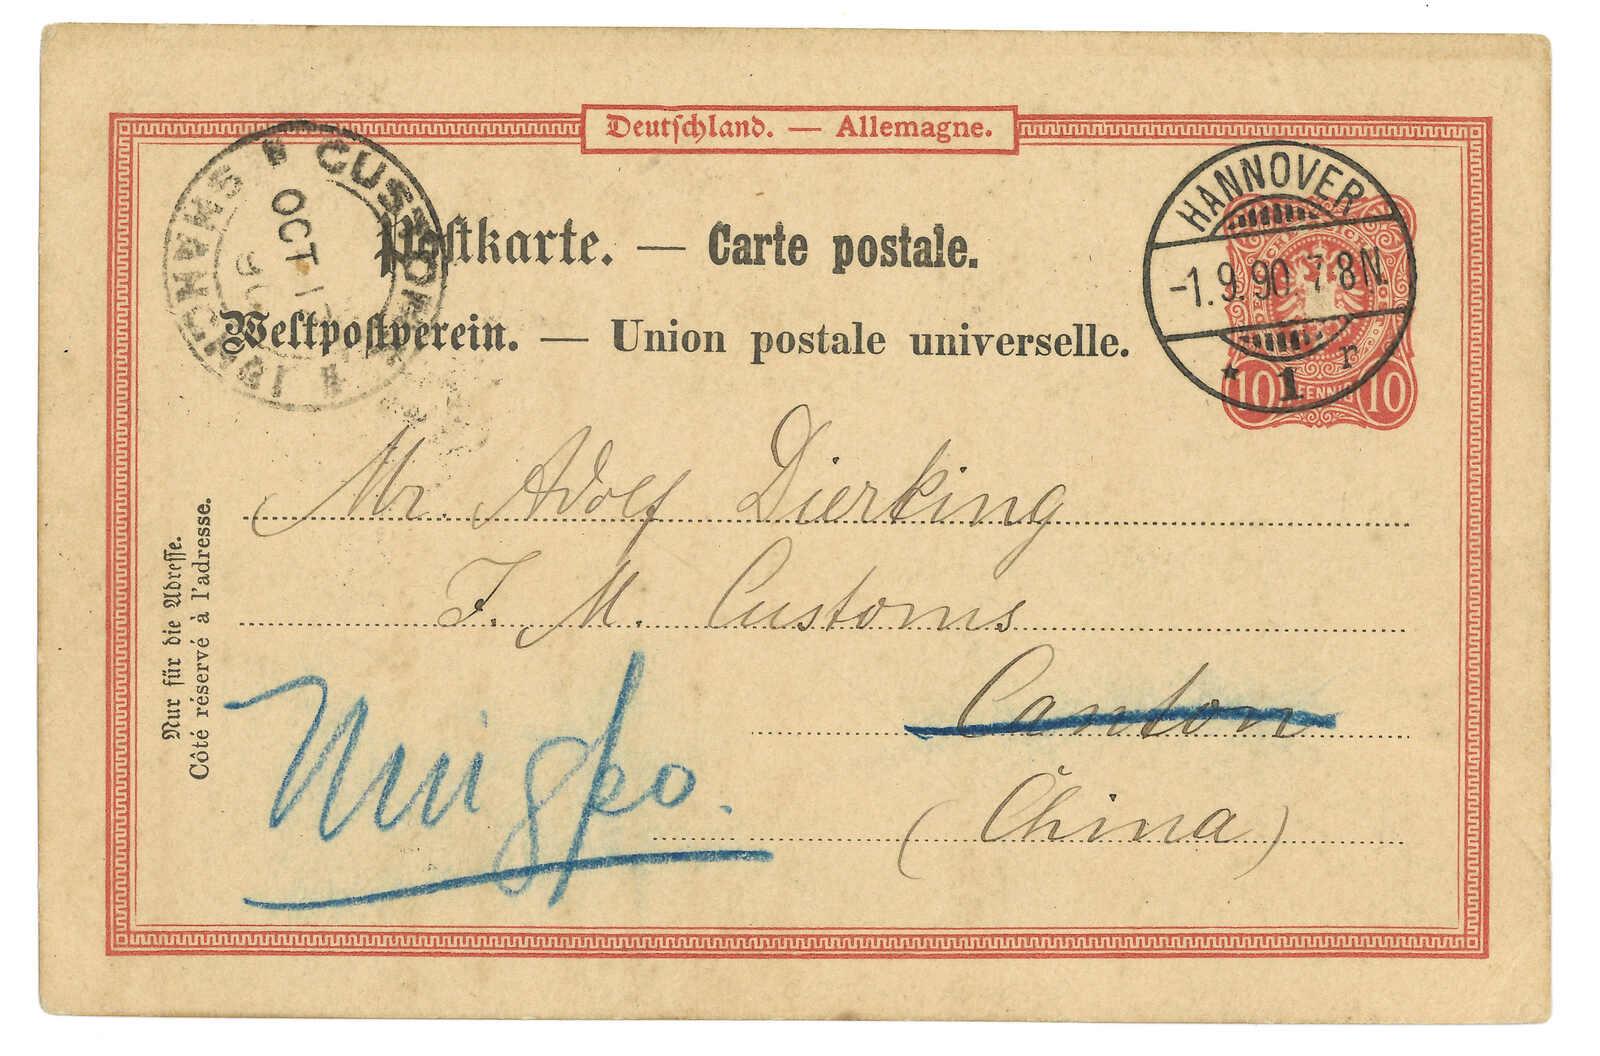 Deutschland. — Allemagne.
CUSTOMS
OCT
HANNOVER
-1.9.90. 7-8N.
* 1 r
10 PFENNIG 10
Postkarte. — Carte postale.
Weltpostverein. — Union postale universelle.
Nur für die Adresse.
Côté réservé à l'adresse.
Mr. Adolf Dierking
I. M. Customs
Canton
Ningpo.
(China)